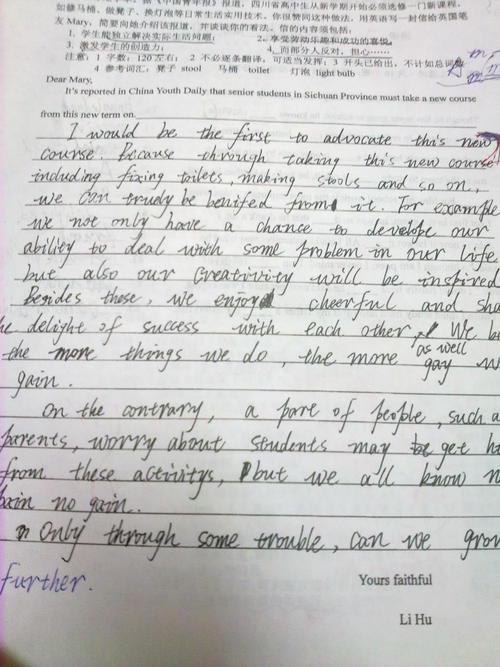 据《中国青年报》报道，四川省高中生从新学期开始必须选修一门新课程，
如修马桶，做凳子，换灯泡等日常生活实用技术。你很赞同这种做法，用英语写一封信给英国笔
友 Mary，简要向她介绍该报道，并谈谈你的看法。信的内容须包括：
1. 学生能独立解决实际生活问题； 2. 享受劳动乐趣和成功的喜悦
3. 激发学生的创造力； 4. 而部分人反对，担心……
注意：1 字数：120 左右； 2 不必逐条翻译，可适当发挥；3 开头已给出，不计如总词数
4 参考词汇：凳子 stool 马桶 toilet 灯泡 light bulb
Dear Mary,
It's reported in China Youth Daily that senior students in Sichuan Province must take a new course
from this new term on.
I would be the first to advocate this new
course. Because through taking this new course
including fixing toilets, making stools and so on,
we can trudy be benifed from it. For example
we not only have a chance to develope our
ability to deal with some problem in our life
but also our creativity will be inspired
Besides these, we enjoy cheerful and sha
he delight of success with each other. We be
the more things we do, the more gay as well w
gain.
On the contrary, a part of people, such a
parents, worry about students may get h
from these activitys, but we all know n
pain no gain.
Only through some trouble, can we grow
further.
Yours faithful
Li Hu